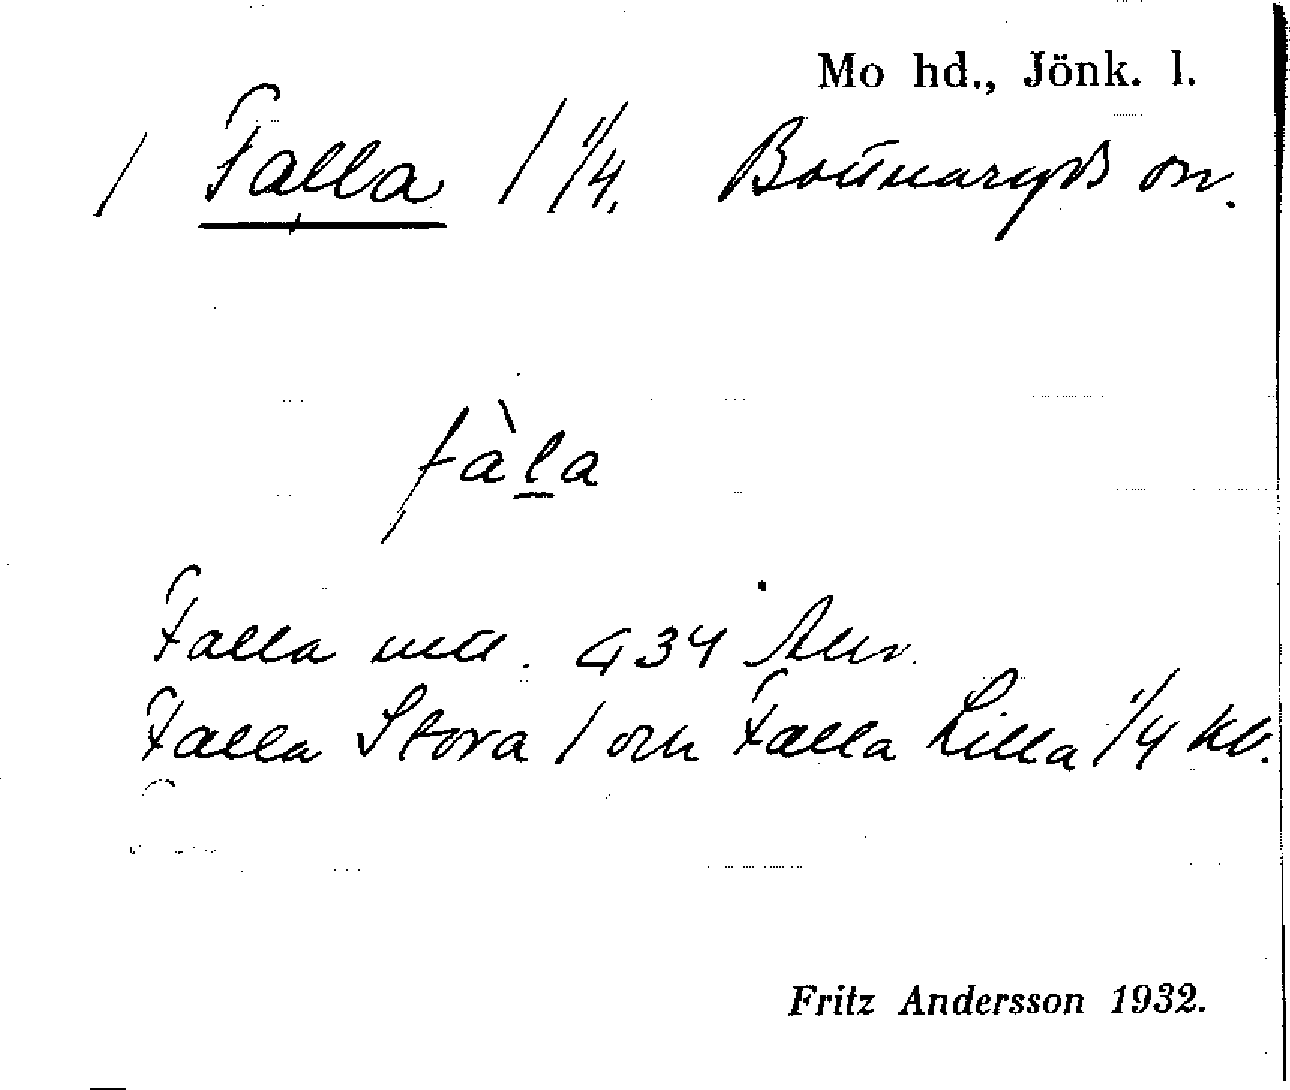 Mo hd., Jönk. l.
/ Falla 1 1/4. Bottnaryds sn.
fàla
Falla mtl. 434 har.
Falla Stora 1 och Falla Lilla 1/4 kb.
Fritz Andersson 1932.